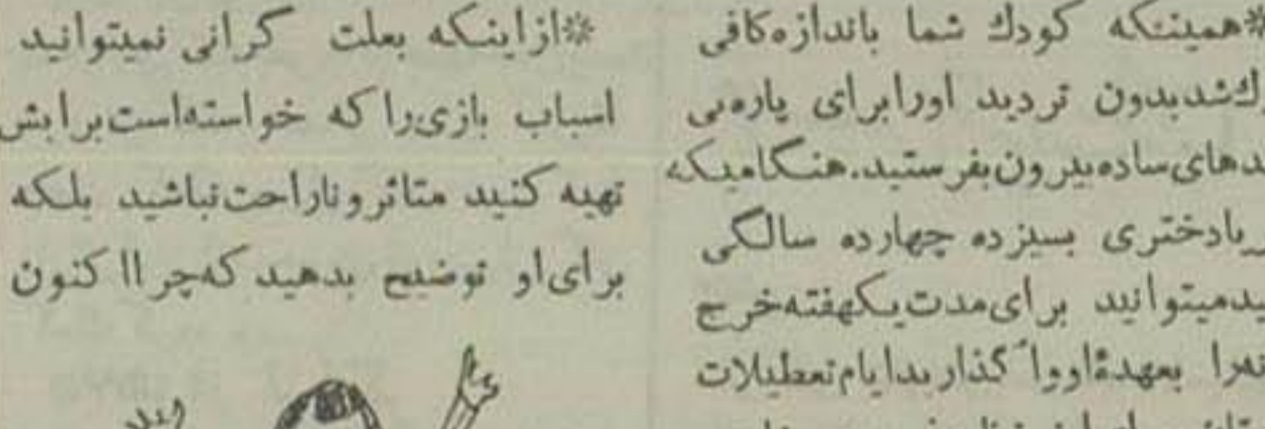 *همینکه کودك شما باندازه‌کافی
شدبدون تردید اورابرای پاره‌یی
ساده‌بیرون‌بفرستید.هنگامیکه
یادختری بسیزده چهارده سالگی
میتوانید برای‌مدت‌یکهفته‌خرج
بعهدهٔ‌اوواگذاربدایام‌تعطیلات
*ازاینکه بعلت گرانی نمیتوانید
اسباب بازی‌راکه خواسته‌است‌برایش
تهیه کنید متاثروناراحت‌نباشید بلکه
برای‌او توضیح بدهید که‌چرااکنون